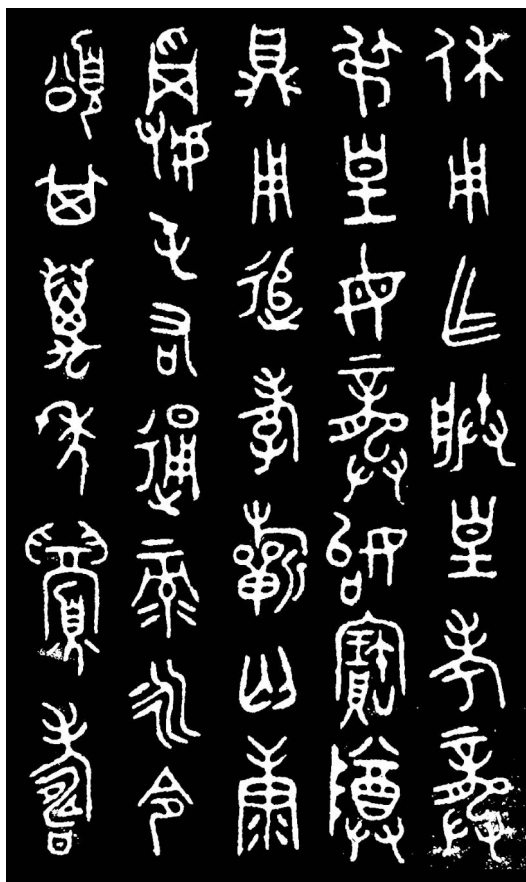 休用乍朕皇考龔
弔皇母龔始寶尊
鼎用追孝匄康
屯右通彔永令
頌其萬年眉壽